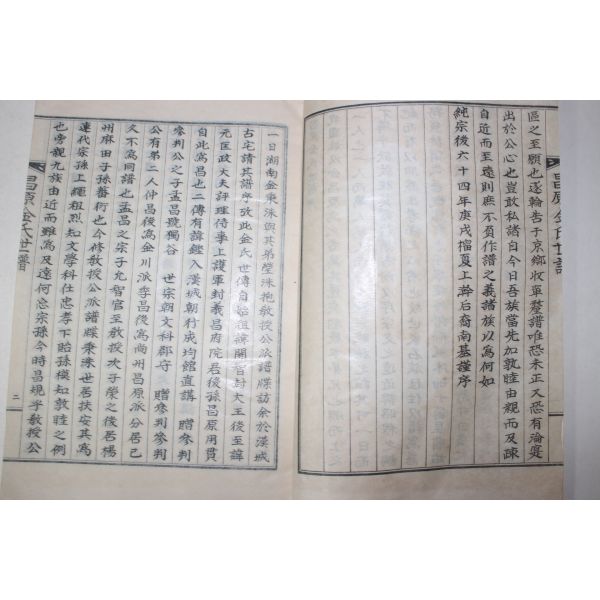 昌原金氏世譜
區之至願也遂輪告于京鄕收單釐譜唯恐未正又恐有淪
出於公心也豈敢私諸自今日吾族當先加敦睦由親而及疎
自近而至遠則庶不負作譜之義諸族以爲何如
純宗後六十四年庚戌榴夏上澣后裔南基謹序
一日湖南金東洙與其弟瑩洙抱敎授公派譜牒訪余於漢城
古宅請其譜序攷此金氏世傳自始祖諱閼智封大王後至諱
元匡政大夫評理侍事上護軍封義昌府院君後孫昌原用貫
自此爲昌也二傳有諱鑑入漢城朝行成均館直講 贈參判
參判公之子孟昌號獨谷 世宗朝文科郡守 贈參判參判
公有弟二人仲昌後爲金川派季昌後爲尙州昌原派分居已
久不爲同譜也孟昌之宗子允智官至敎授次子榮之後居楊
州麻田子孫蕃衍也今修敎授公派譜牒乘來世居扶安其爲
連代宗孫上繩祖烈知文學科仕忠孝下貽孫模知敦睦之例
也旁觀九族由近而雖爲及遠何忘宗孫今時昌規乎敎授公
昌原金氏世譜
二